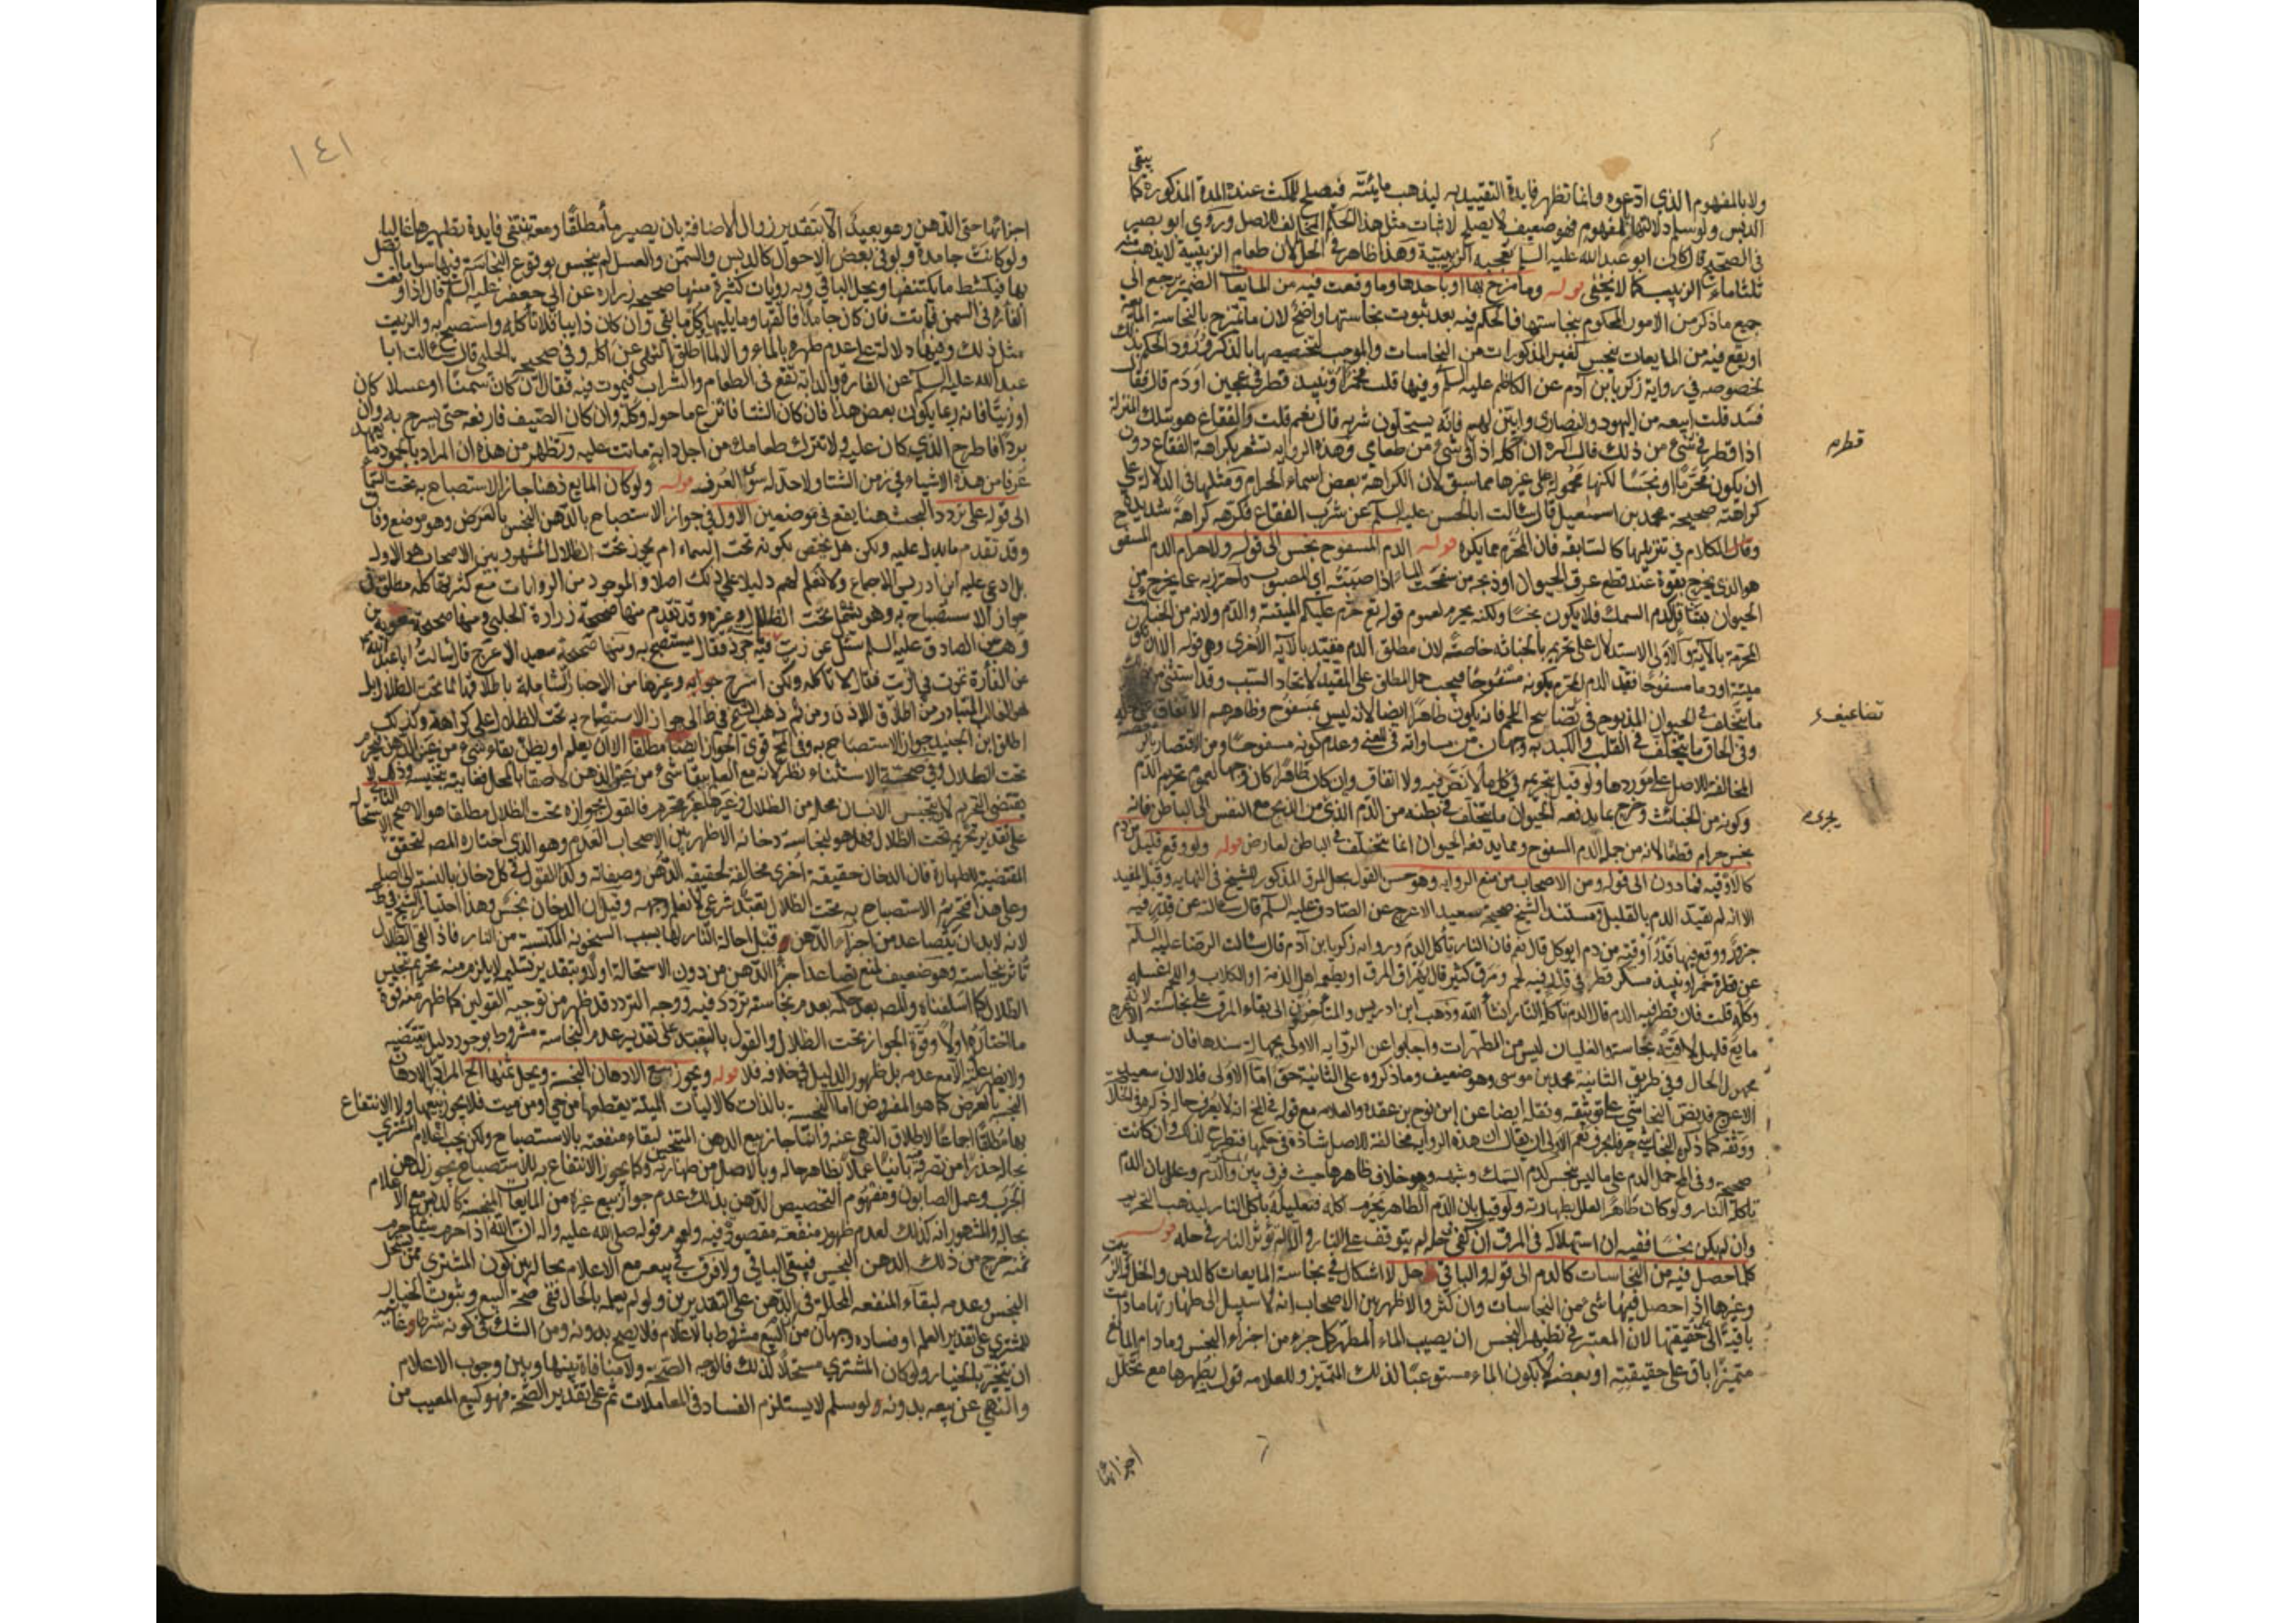 ولا بالمفهوم الذي ادعوه وانما تظهر فايدة التقييد به ليذهب مائيته فيصلح للمكث عنده المدة المذكورة كما
يبقى
الدبس ولو سلم دلالتها بالمفهوم فهو ضعيف لا يصلح لاثبات مثل هذا الحكم المخالف للاصل وروى ابو بصير
في الصحيح قال كان ابو عبد الله عليه السلم تعجبه الزبيبية وهذا ظاهر في الحل لان طعام الزبيبة لا يذهب فيه
ثلثا ماء الزبيب كما لا يخفى قوله وما مزج بها او باحدها وما وقعت فيه من المايعات الضمير يرجع الى
جميع ما ذكر من الامور المحكوم بنجاستها فالحكم فيه بعد ثبوت نجاستها واضح لان ما يمتزج بالنجاسة المايعة
او يقع فيه من المايعات ينجس كغير المذكورات من النجاسات والموجب لتخصيصها بالذكر ورود الحكم بذلك
بخصوصه في رواية زكريا بن آدم عن الكاظم عليه السلم وفيها قلت فخمر او نبيذ قطر في عجين او دم قال فقال
فسد قلت ابيعه من اليهود والنصارى وابين لهم فانه يستحلون شربه قال نعم قلت والفقاع هو بتلك المنزلة
اذا قطر في شيء من ذلك قال اكره ان آكله اذا في شيء من طعامي وهذه الرواية تشعر بكراهة الفقاع دون
قطر م
ان يكون محرما او نجسا لكنها محمولة على غيرها مما سبق لان الكراهة بعض اسماء الحرام ومثلها في الدلالة على
كراهته صحيحة محمد بن اسمعيل قال سالت ابا الحسن عليه السلم عن شرب الفقاع فكرهه كراهة شديدة
وقال الكلام في تنزيلها كالسابقه فان المحرم مما يكره قوله الدم المسفوح نجس الى قوله ولا حرام الدم المسفوح
هو الذي يخرج بقوة عند قطع عرق الحيوان او ذبحه من سفحت الماء اذا صببته اي المصبوب واحترز به عما يخرج من
الحيوان بتثاقل كدم السمك فلا يكون نجسا ولكنه يحرم لعموم قوله تع حرم عليكم الميتة والدم ولانه من الخبائث
المحرمة بالآية والاولى الاستدلال على تحريمه بالخباثه خاصة لان مطلق الدم مقيد بالآية الاخرى وهي قوله الا ان يكون
ميتة او دما مسفوحا فقيد الدم المحرم بكونه مسفوحا فيجب حمل المطلق على المقيد لاتحاد السبب وقد استثنى من
ما يتخلف في الحيوان المذبوح في تضاعيف اللحم فانه يكون طاهرا ايضا لانه ليس بمسفوح وظاهرهم الاتفاق
تضاعيف
وفي الحاق ما يتخلف في القلب والكبد به وجهان من مساواته في المعنى وعدم كونه مسفوحا ومن الاقتصار بالر
المخالفة للاصل على موردها ولو قيل بتحريمه في كل ما لا نص فيه ولا اتفاق وان كان طاهرا كان وجها لعموم تحريم الدم
وكونه من الخبائث وخرج عما يدفعه الحيوان ما يتخلف في بطنه من الدم الذي من الذبح مع النفس الى الباطن فانه
يجري م
نجس حرام قطعا لانه من جملة الدم المسفوح ومما يدفعه الحيوان انما يتخلف في الباطن لعارض قوله ولو وقع قليل من دم
كالاوقيه فما دون الى قوله ومن الاصحاب من منع الرواية وهو حسن القول بحل المرق المذكور للشيخ في النهايه وقبله المفيد
الا انه لم يقيد الدم بالقليل ومستند الشيخ صحيحة سعيد الاعرج عن الصادق عليه السلم قال سالته عن قدر فيه
جزور ووقع فيها قدر اوقية من دم ايوكل قال نعم فان النار تأكل الدم ورواية زكريا بن آدم قال سالت الرضا عليه السلم
عن قطرة خمر او نبيذ مسكر قطر في قدر فيه لحم ومرق كثير قال يهراق المرق او يطعمه اهل الذمة او الكلاب واللحم يغسله
وكله قلت فان قطر فيه الدم قال الدم تأكله النار انشا الله وذهب ابن ادريس والمتاخرون الى بقاء المرق على نجاسته لانه
مايع قليل لاقته نجاسة والغليان ليس من المطهرات واجابوا عن الرواية الاولى بجهالة سندها فان سعيد الاعرج
مجهول الحال وفي طريق الثانية محمد بن موسى وهو ضعيف وما ذكروه على الثانية حق اما الاولى فلا لان سعيد
الاعرج قد نص النجاشي على توثيقه ونقله ايضا عن ابن نوح بن عقده والعلامه مع قوله في المخ انه لا يعرف حاله ذكره في الخلاصة
ووثقه كما ذكره النجاشي حرفا بحرف نعم الاولى ان يقال ان هذه الرواية مخالفة للاصل شاذة في حكمها فتطرح لذلك وان كانت
صحيحة وفي المخ حمل الدم على ما ليس بنجس كدم السمك وشبهه وهو خلاف ظاهرها حيث فرق بين والدم وعلل بان الدم
تأكله النار ولو كان طاهرا لعلل بطهارته ولو قيل بان الدم الطاهر يحرم اكله فتعليله بأكل النار ليذهب التحريم
وان لم يكن نجسا ففيه ان استهلاكه في المرق ان كفى في حله لم يتوقف على النار والا لم تؤثر النار في حله قوله
كلما حصل فيه من النجاسات كالدم الى قوله والباقي حل لا اشكال في نجاسة المايعات كالدبس والخل والزيت
وغيرها اذا حصل فيها شيء من النجاسات وان كثر والاظهر بين الاصحاب انه لا سبيل الى طهارتها ما دامت
باقية الى حقيقتها لان المعتبر في تطهير النجس ان يصيب الماء المطهر كل جزء من اجزاء النجس وما دام المايع
متميزا باق على حقيقته او بعضه لا يكون الماء مستوعبا لذلك المتميز وللعلامه قول بطهرها مع تخلل
اجزائها
١٤١
اجزائها حتى الدهن وهو بعيد الا بتقدير زوال الاضافة بان يصير ماء مطلقا ومعه تنتفي فايدة تطهيرها غالبا
ولو كانت جامدة ولو في بعض الاحوال كالدبس والسمن والعسل لم ينجس بوقوع النجاسة فيها سوى ما اتصل
بها فيكشط ما يكتنفها ويحل الباقي وبه روايات كثيرة منها صحيحة زرارة عن ابي جعفر عليه السلم قال اذا وقعت
الفارة في السمن فماتت فان كان جامدا فالقها وما يليها وكل ما بقي وان كان ذايبا فلا تاكله واستصبح به والزيت
مثل ذلك وفيها دلالة على عدم طهره بالماء والا لما اطلق النهي عن اكله وفي صحيحة الحلبي قال سالت ابا
عبد الله عليه السلم عن الفارة والدابة تقع في الطعام والشراب فيموت فيه فقال ان كان سمنا او عسلا
او زيتا فانه ربما يكون بعض هذا فان كان الشتا فانزع ما حوله وكله وان كان الصيف فارفعه حتى يسرج به وان
بردا فاطرح الذي كان عليه ولا تترك طعامك من اجل دابة ماتت عليه ويظهر من هذه ان المراد بالجمود ما
عرفا من هذه الاشياء في زمن الشتا ولا حد له سوى العرف قوله ولو كان المايع دهنا جاز الاستصباح به تحت السماء
الى قوله على تردد البحث هنا يقع في موضعين الاول في جواز الاستصباح بالدهن النجس بالعرض وهو موضع وفاق
وقد تقدم ما يدل عليه ولكن هل يختص بكونه تحت السماء ام يجوز تحت الظلال المشهور بين الاصحاب هو الاول
بل ادعى عليه ابن ادريس الاجماع ولا نعلم لهم دليلا على ذلك اصلا والموجود من الروايات مع كثرتها كله مطلق في
جواز الاستصباح به وهو يشمل تحت الظلال وغيره وقد تقدم منها صحيحة زرارة الحلبي ومنها صحيحة معوية بن
وهب عن الصادق عليه السلم سئل عن زيت فيه جرذ فقال يستصبح به ومنها صحيحة سعيد الاعرج قال سالت ابا عبد الله
عن الفأرة تموت في الزيت فقال لا تاكله ولكن اسرج به وغيرها من الاخبار الشاملة باطلاقها لما تحت الظلال بل
هو الغالب المتبادر من اطلاق الاذن ومن ثم ذهب الشيخ في ط الى جواز الاستصباح به تحت الظلال على كراهة وكذلك
اطلق ابن الجنيد جواز الاستصباح به وفي المخ قوى الجواز ايضا مطلقا الا ان يعلم او يظن بقاء شيء من عين الدهن فيحرم
تحت الظلال وفي صحة الاستثناء نظر لانه مع العلم ببقاء شيء من عين الدهن لاصقا بالمحل فغايته تنجيسه وذلك لا
يقتضي التحريم لان تنجيس الانسان محله من الظلال وغيرها غير محرم فالقول بجوازه تحت الظلال مطلقا هو الاصح الثاني
على تقدير تحريمه تحت الظلال فهل هو لنجاسة دخانه الاظهر بين الاصحاب العدم وهو الذي اختاره المصـ لتحقق الاستحالة
المقتضية للطهارة فان الدخان حقيقة اخرى مخالفة لحقيقة الدهن وصفاته وكذا القول في كل دخان بالنسبة الى اصله
وعلى هذا فتحريم الاستصباح به تحت الظلال تعبد شرعي لا نعلم وجهه وقيل ان الدخان نجس وهذا اختيار الشيخ في ط
لانه لابد ان يتصاعد من اجزاء الدهن قبل احالة النار لها بسبب السخونة المكتسبة من النار فاذا لقي الظلال
تاثر بنجاسته وهو ضعيف لمنع تصاعد اجزاء الدهن من دون الاستحالة اولا وبتقدير تسليمه لا يلزم منه تحريم تنجيس
الظلال كما اسلفناه وللمصـ بعد حكمه بعدم نجاسته تردد فيه ووجه التردد قد ظهر من توجيه القولين كما ظهر منه قوة
ما اختاره اولا وقوة الجواز تحت الظلال والقول بالتعبد على تقدير عدم النجاسة مشروط بوجود دليل يقتضيه
ولا يظهر عليه الا مع عدمه بل ظهور الدليل في خلافه فلا قوله ويجوز بيع الادهان النجسة ويحل ثمنها الخ المراد الادهان
النجسة بالعرض كما هو المفروض اما النجسة بالذات كالاليات الميتة يقطعها من حي او من ميت فلا يجوز بيعها ولا الانتفاع
بها مطلقا اجماعا لاطلاق النهي عنه وانما جاز بيع الدهن المتنجس لبقاء منفعته بالاستصباح ولكن يجب اعلام المشتري
بحاله حذرا من تصرفه بانيا عملا بظاهر حاله وبالاصل من طهارته وكما يجوز الانتفاع به للاستصباح يجوز لدهن
الجرب وعمل الصابون ومفهوم التخصيص الدهن بذلك عدم جواز بيع غيره من المايعات النجسة كالدبس مع الاعلام
بحاله والمشهور انه كذلك لعدم ظهور منفعة مقصودة فيه ولعموم قوله صلى الله عليه واله ان الله اذا حرم شيئا حرم
ثمنه خرج من ذلك الدهن النجس فيبقى الباقي ولا فرق في بيعه مع الاعلام بحاله بين كون المشتري ممن يستحل
النجس وعدمه لبقاء المنفعة المحللة في الدهن على التقديرين ولو لم يعلمه بالحال ففي صحة البيع وثبوت الخيار
للمشتري على تقدير العلم او فساده وجهان من البيع مشروط بالاعلام فلا يصح بدونه ومن الشك في كونه شرطا وغايته
ان يتخير بالخيار ولو كان المشتري مستحلا لذلك فالوجه الصحة ولا منافاة بينها وبين وجوب الاعلام
والنهي عن بيعه بدونه ولو سلم لا يستلزم الفساد في المعاملات ثم على تقدير الصحة فهو كبيع المعيب من